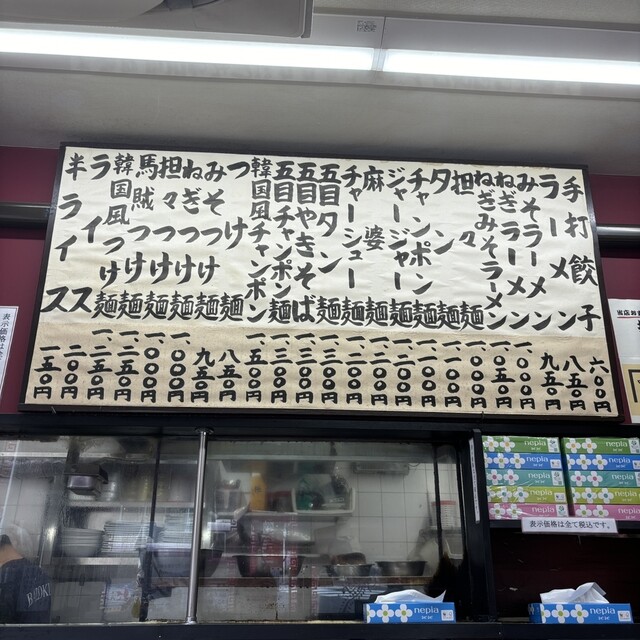 手打餃子 六〇〇円
ラーメン 八五〇円
みそラーメン 九五〇円
ねぎラーメン 一、〇〇〇円
ねぎみそラーメン 一、〇五〇円
担々麺 一、〇〇〇円
タン麺 一、一〇〇円
チャンポン麺 一、一〇〇円
ジャージャー麺 一、二〇〇円
麻婆麺 一、二〇〇円
チャーシュー麺 一、三〇〇円
五目タン麺 一、三〇〇円
五目やきそば 一、三〇〇円
五目チャンポン麺 一、三〇〇円
韓国風チャンポン 一、五〇〇円
つけ麺 八五〇円
みそつけ麺 九五〇円
ねぎつけ麺 一、〇〇〇円
担々つけ麺 一、〇〇〇円
馬賊つけ麺 一、二五〇円
韓国風つけ麺 一、二五〇円
ライス 二〇〇円
半ライス 一五〇円
表示価格は全て
当店お
nepia
nepia
nepia
nepia
nepia
nepia
nepia
nepia
nepia
nepia
表示価格は全て税込です。
nepia
nepia